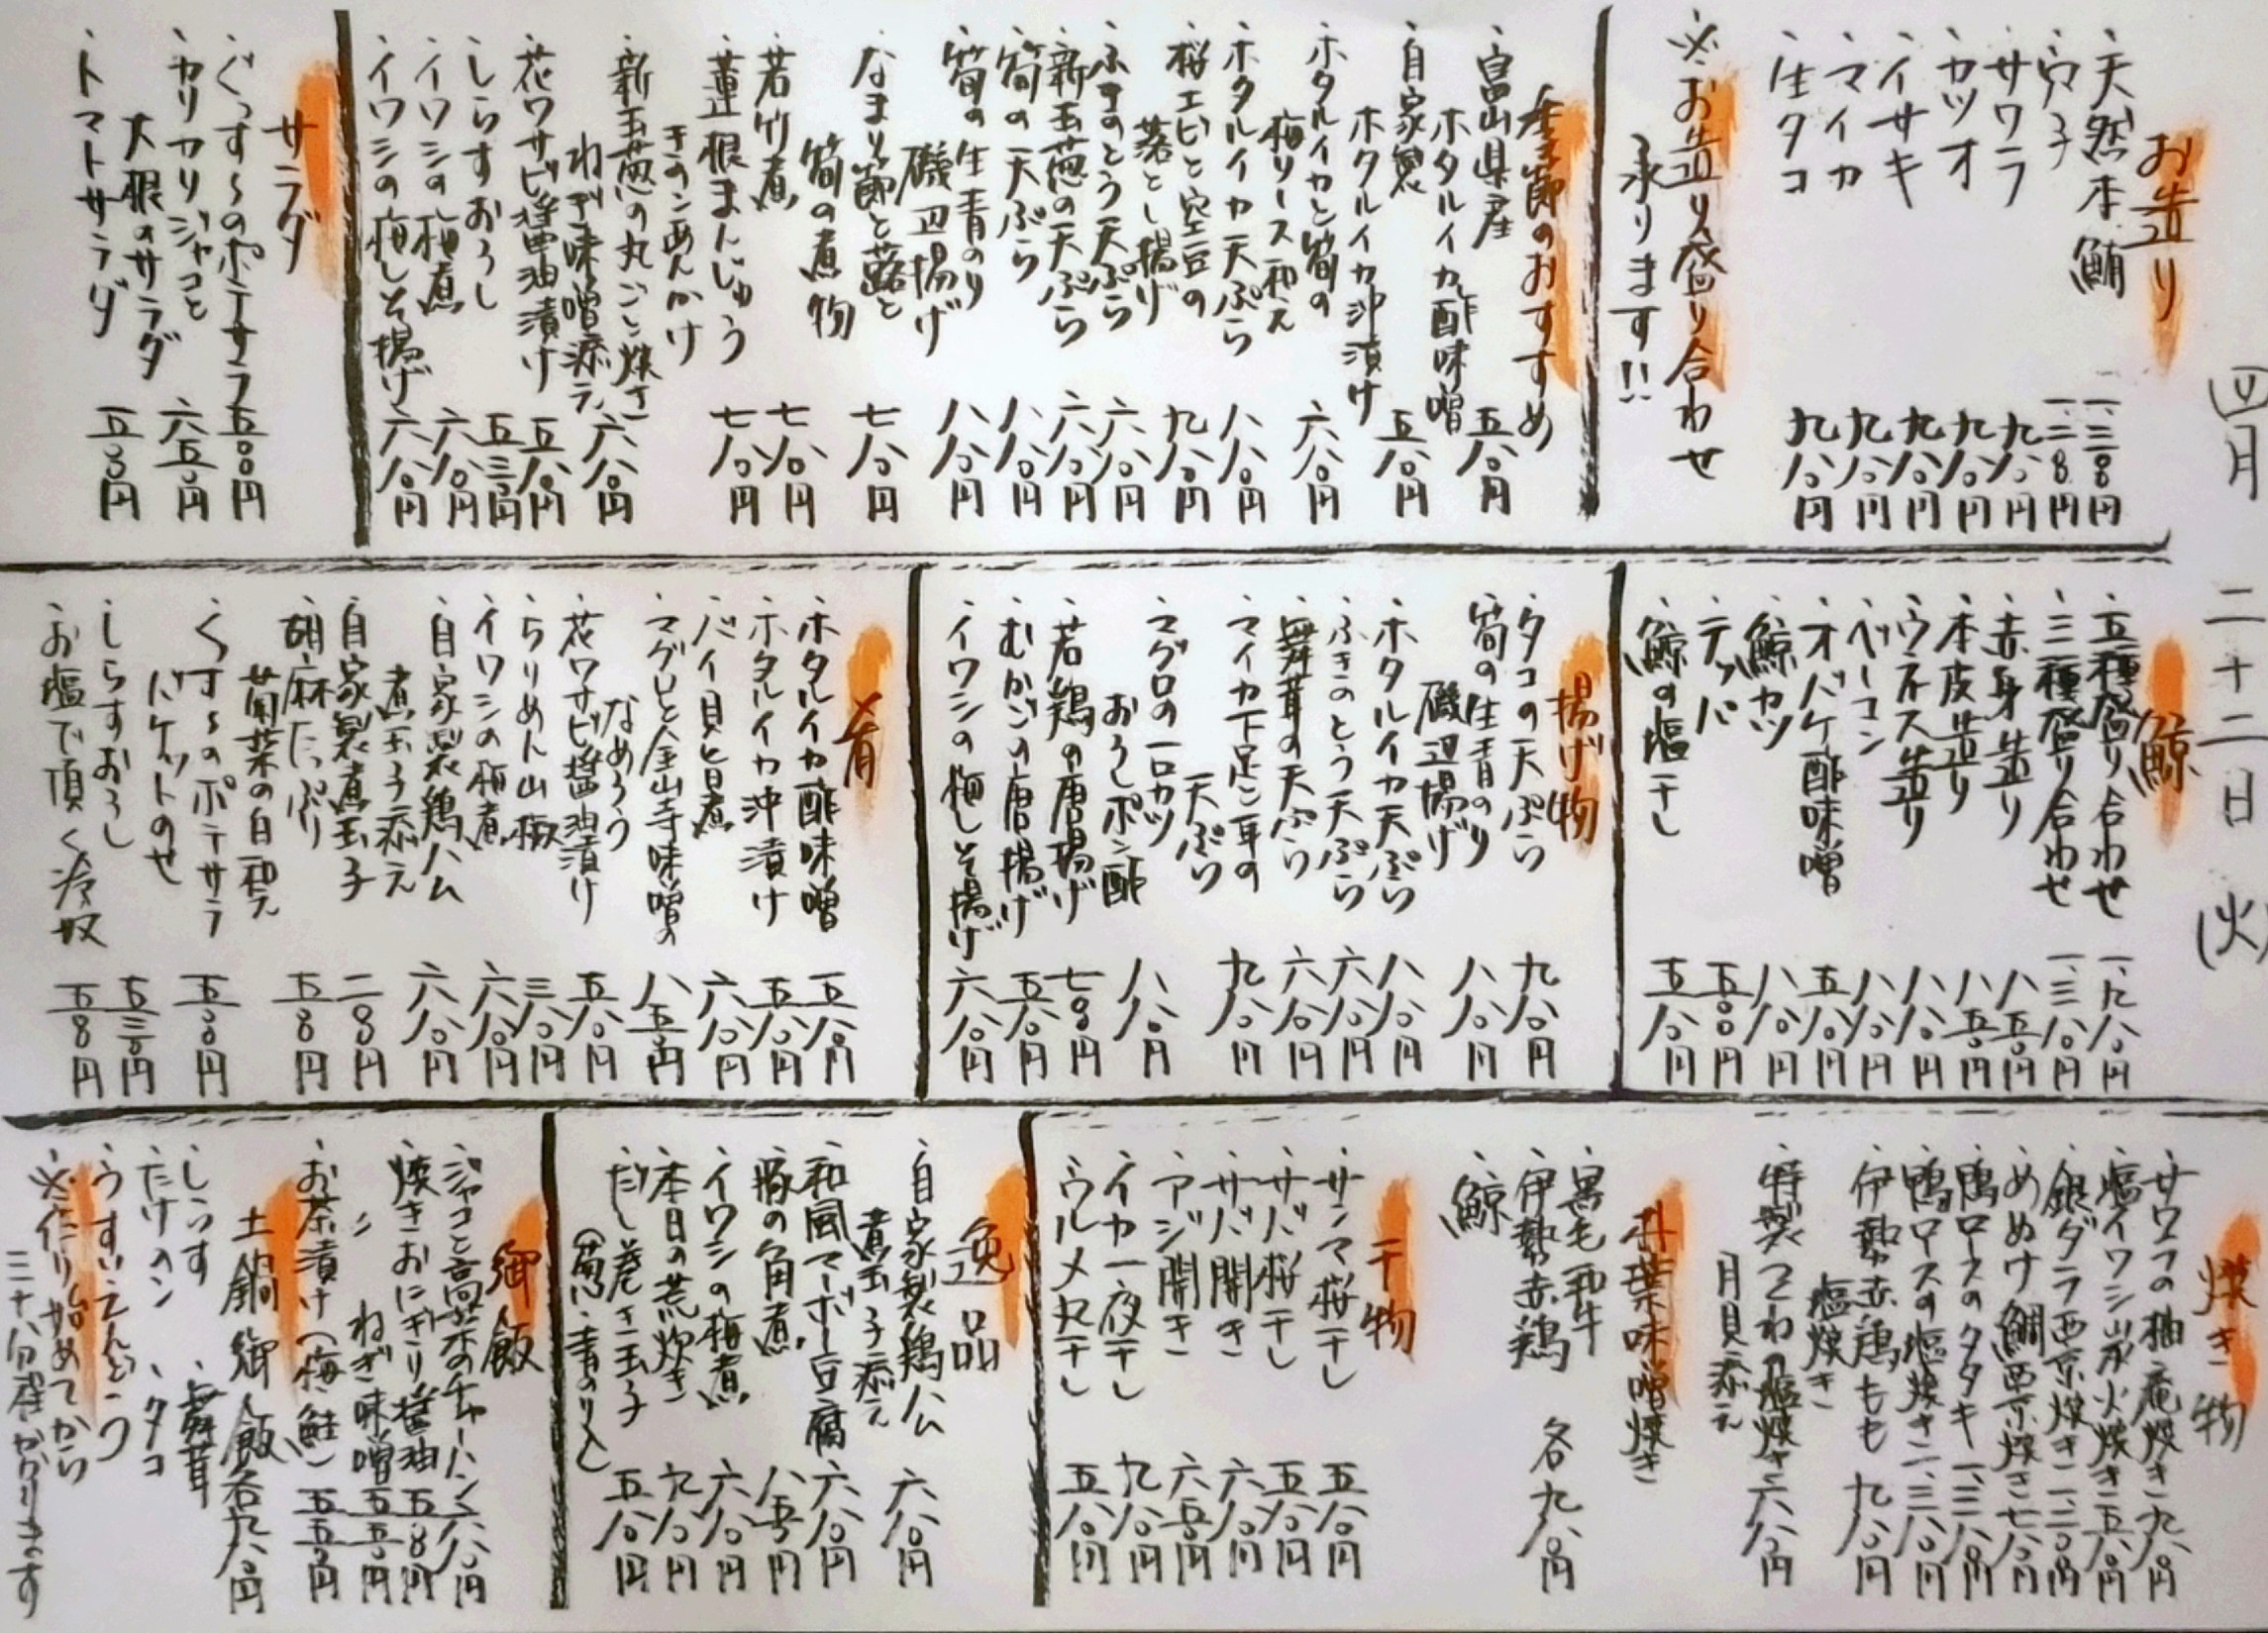 四月 二十二日 (火)
お造り
・天然本鮪 一、三八〇円
・穴子 一、三八〇円
・サワラ 九八〇円
・カツオ 九八〇円
・イサキ 九八〇円
・マイカ 九八〇円
・生タコ 九八〇円
※お造り盛り合わせ
承ります!!
季節のおすすめ
・富山県産
ホタルイカ酢味噌 五八〇円
・自家製
ホタルイカ沖漬け 五八〇円
・ホタルイカと筍の
梅リース和え 六八〇円
・ホタルイカ天ぷら 八八〇円
・桜エビと空豆の
落とし揚げ 九八〇円
・ふきのとう天ぷら 六八〇円
・新玉葱の天ぷら 六八〇円
・筍の天ぷら 八八〇円
・筍の生青のり
磯辺揚げ 八八〇円
・なまり節と蕗と
筍の煮物 七八〇円
・若竹煮 七八〇円
・蓮根まんじゅう
きのこあんかけ 七八〇円
・新玉葱の丸ごと焼き
ねぎ味噌添え 六八〇円
・花ワサビ醤油漬け 五八〇円
・しらすおろし 五三〇円
・イワシの梅煮 六八〇円
・イワシの梅しそ揚げ 六八〇円
サラダ
・ぐっすのポテサラ 五〇〇円
・カリカリジャコと
大根のサラダ 六五〇円
・トマトサラダ 五〇〇円
鯨
・五種盛り合わせ 一、九八〇円
・三種盛り合わせ 一、三八〇円
・赤身造り 八五〇円
・本皮造り 八五〇円
・ウネス造り 八八〇円
・ベーコン 八八〇円
・オバケ酢味噌 五八〇円
・鯨カツ 八八〇円
・テッパ 五〇〇円
・鯨の塩干し 五八〇円
揚げ物
・タコの天ぷら 九八〇円
・筍の生青のり
磯辺揚げ 八八〇円
・ホタルイカ天ぷら 八八〇円
・ふきのとう天ぷら 六八〇円
・舞茸の天ぷら 六八〇円
・マイカ下足と耳の
天ぷら 九八〇円
・マグロの一口カツ
おろしポン酢 八八〇円
・若鶏の唐揚げ 七〇〇円
・むかごの唐揚げ 五八〇円
・イワシの梅しそ揚げ 六八〇円
肴
・ホタルイカ酢味噌 五八〇円
・ホタルイカ沖漬け 五八〇円
・バイ貝旨煮 六八〇円
・マグロと金山寺味噌の
なめろう 八五〇円
・花ワサビ醤油漬け 五八〇円
・ちりめん山椒 三八〇円
・イワシの梅煮 六八〇円
・自家製鶏ハム
煮玉子添え 六八〇円
・自家製煮玉子 二〇〇円
・胡麻たっぷり
菊菜の白和え 五〇〇円
・ぐっすのポテサラ
バケットのせ 五〇〇円
・しらすおろし 五三〇円
・お塩で頂く冷奴 五〇〇円
焼き物
・サワラの柚庵焼き 九八〇円
・塩イワシ炭火焼き 五八〇円
・銀ダラ西京焼き 一、二八〇円
・めぬけ鯛西京焼き 七八〇円
・鴨ロースのタタキ 一、三八〇円
・鴨ロースの塩焼き 一、三八〇円
・伊勢赤鶏もも
塩焼き 九八〇円
・特製つくね塩焼き
月見添え 六八〇円
朴葉味噌焼き
・黒毛和牛
・伊勢赤鶏 各九八〇円
・鯨
干物
・サンマ桜干し 五八〇円
・サバ桜干し 五八〇円
・サバ開き 六八〇円
・アジ開き 六五〇円
・イカ一夜干し 九八〇円
・ウルメ丸干し 五八〇円
逸品
・自家製鶏ハム
煮玉子添え 六八〇円
・和風マーボー豆腐 六八〇円
・豚の角煮 八五〇円
・イワシの梅煮 六八〇円
・本日の荒炊き 九八〇円
・だし巻き玉子
(葱・青のり入) 五八〇円
御飯
・ジャコと高菜のチャーハン 八八〇円
・焼きおにぎり醤油 五〇〇円
・〃 ねぎ味噌 五五〇円
・お茶漬け(梅・鮭) 五五〇円
土鍋御飯 各九八〇円
・しらす ・舞茸
・たけのこ ・タコ
・うすいえんどう
※作り始めてから
三十分程かかります